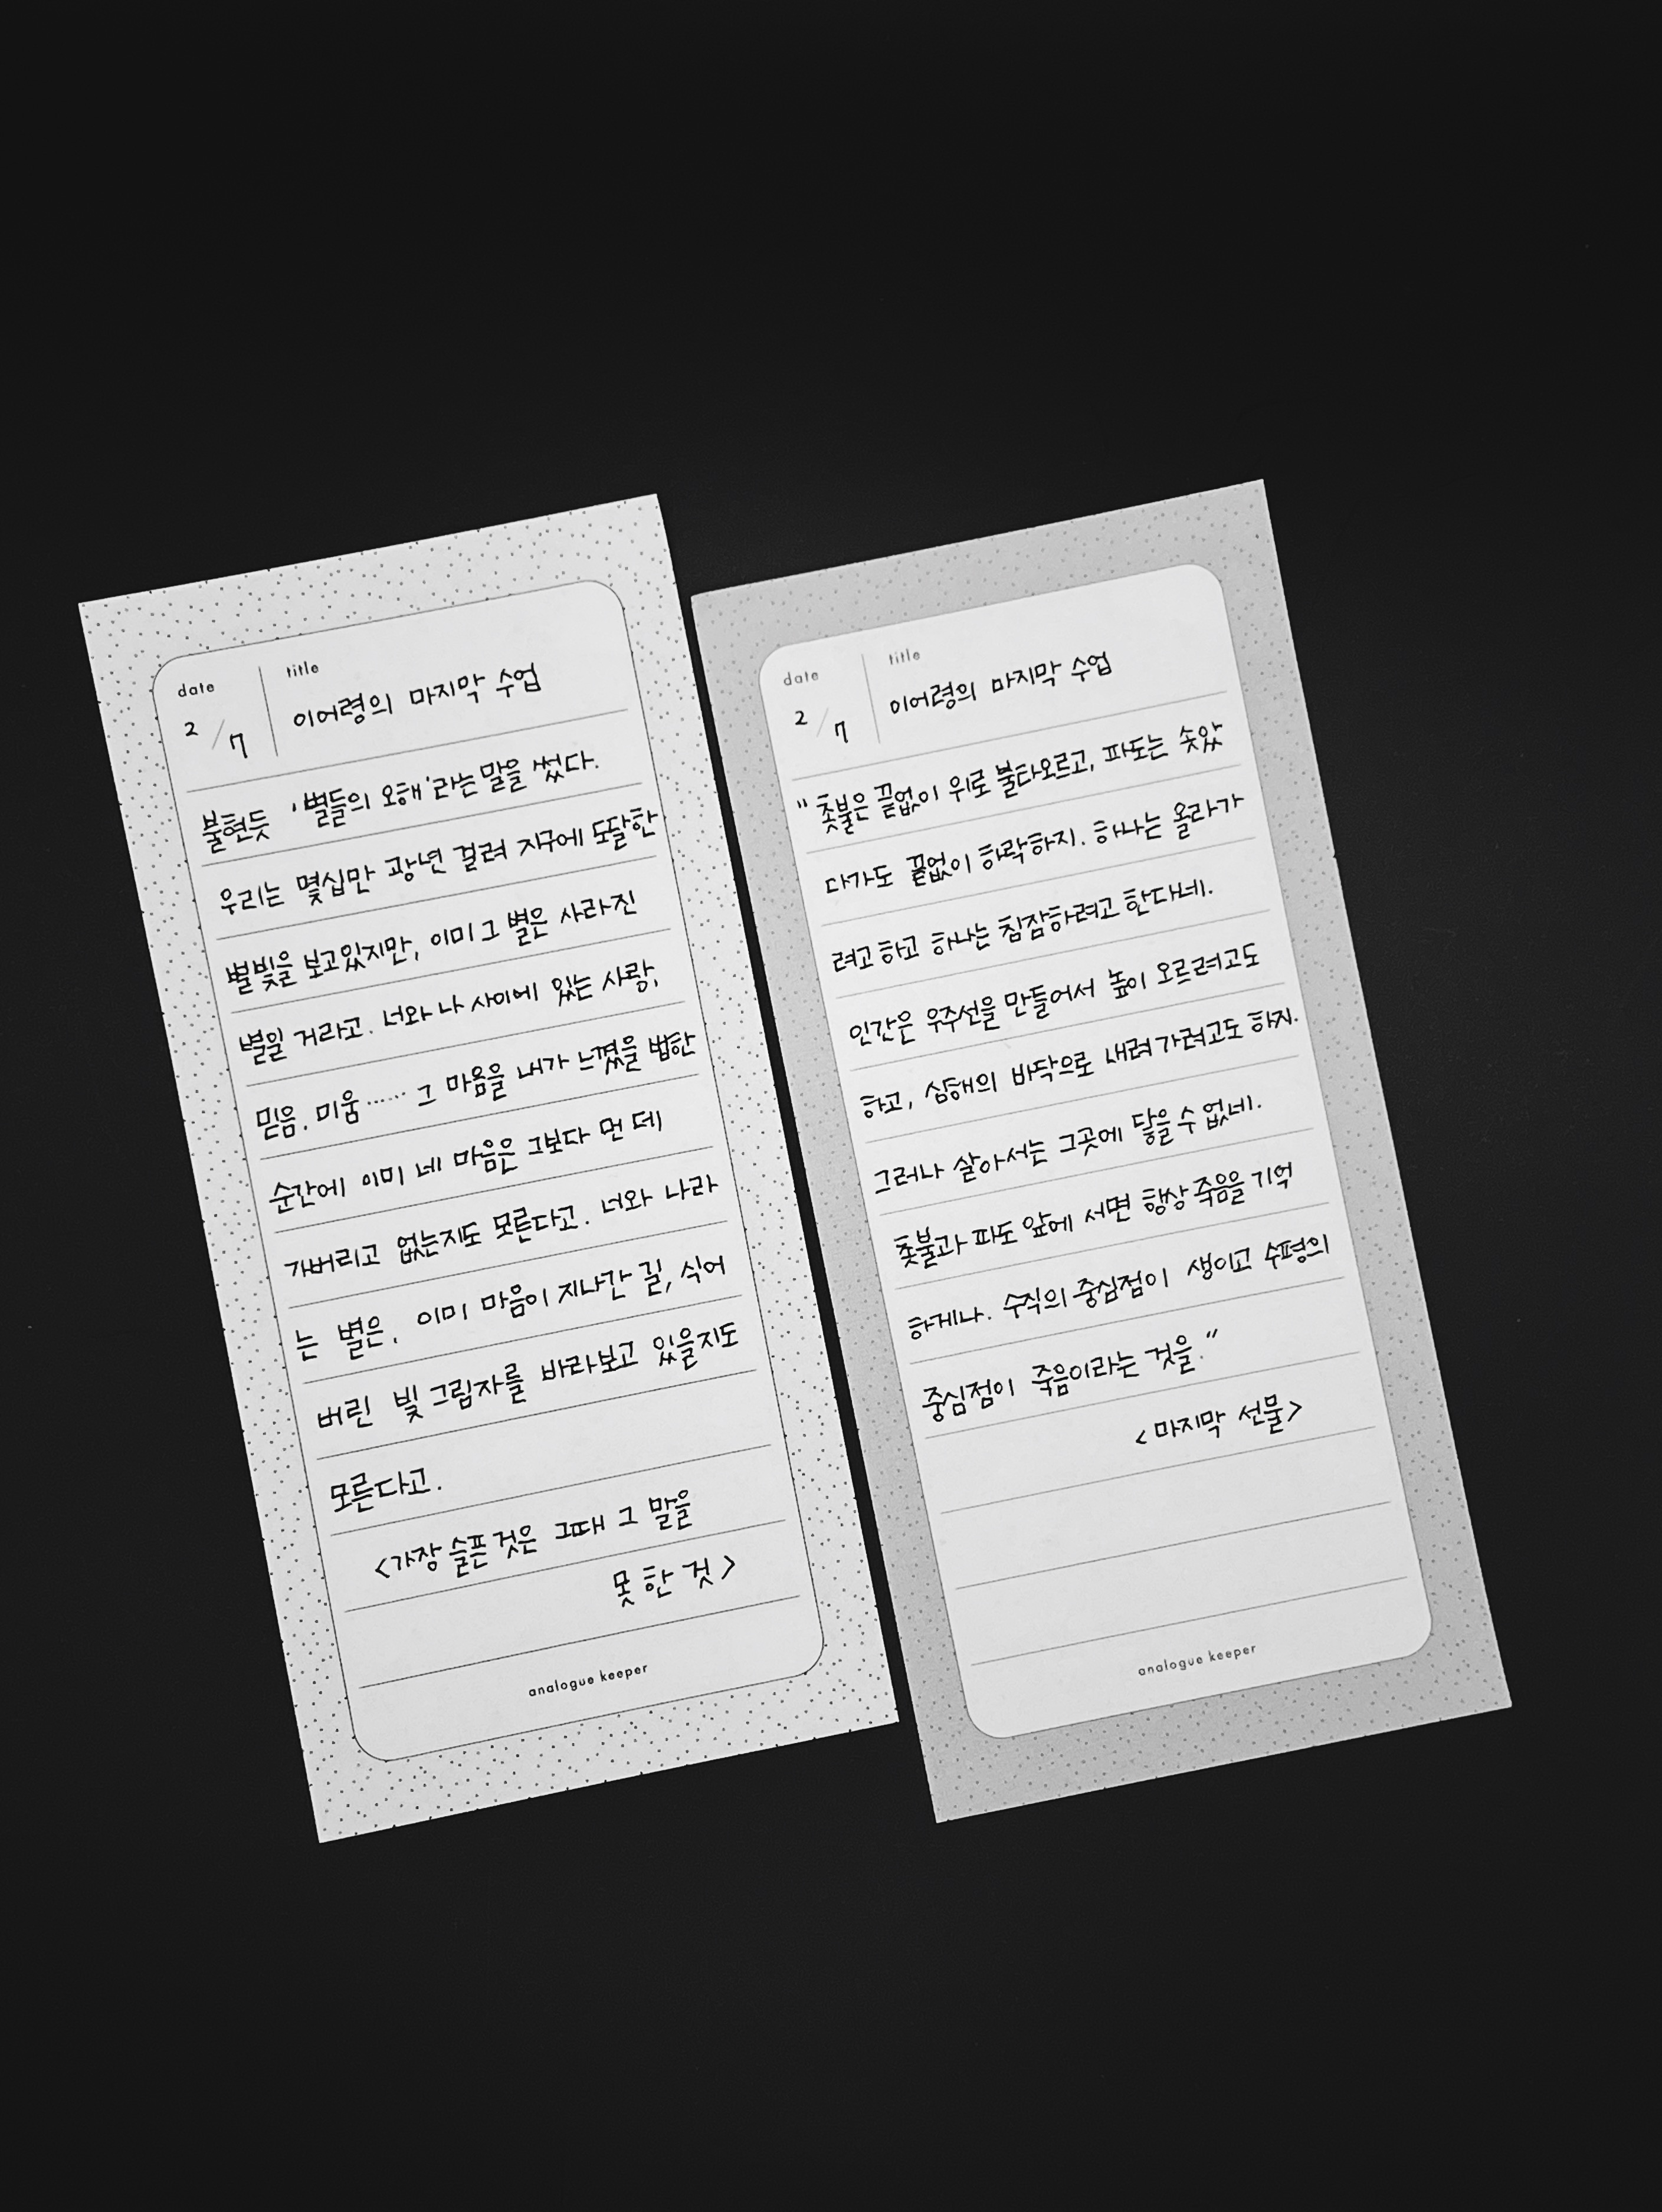 date
title
2/7
이어령의 마지막 수업
불현듯 '별들의 오해'라는 말을 썼다.
우리는 몇십만 광년 걸려 지구에 도달한
별빛을 보고있지만, 이미 그 별은 사라진
별일 거라고. 너와 나 사이에 있는 사랑,
믿음, 미움…… 그 마음을 내가 느꼈을 법한
순간에 이미 네 마음은 그보다 먼 데
가버리고 없는지도 모른다고. 너와 나라
는 별은, 이미 마음이 지나간 길, 식어
버린 빛 그림자를 바라보고 있을지도
모른다고.
<가장 슬픈 것은 그때 그 말을
못 한 것>
analogue keeper
date
title
2/7
이어령의 마지막 수업
"촛불은 끝없이 위로 불타오르고, 파도는 솟았
다가도 끝없이 하락하지. 하나는 올라가
려고 하고 하나는 침잠하려고 한다네.
인간은 우주선을 만들어서 높이 오르려고도
하고, 심해의 바닥으로 내려가려고도 하지.
그러나 살아서는 그곳에 닿을 수 없네.
촛불과 파도 앞에 서면 항상 죽음을 기억
하게나. 수직의 중심점이 생이고 수평의
중심점이 죽음이라는 것을."
<마지막 선물>
analogue keeper